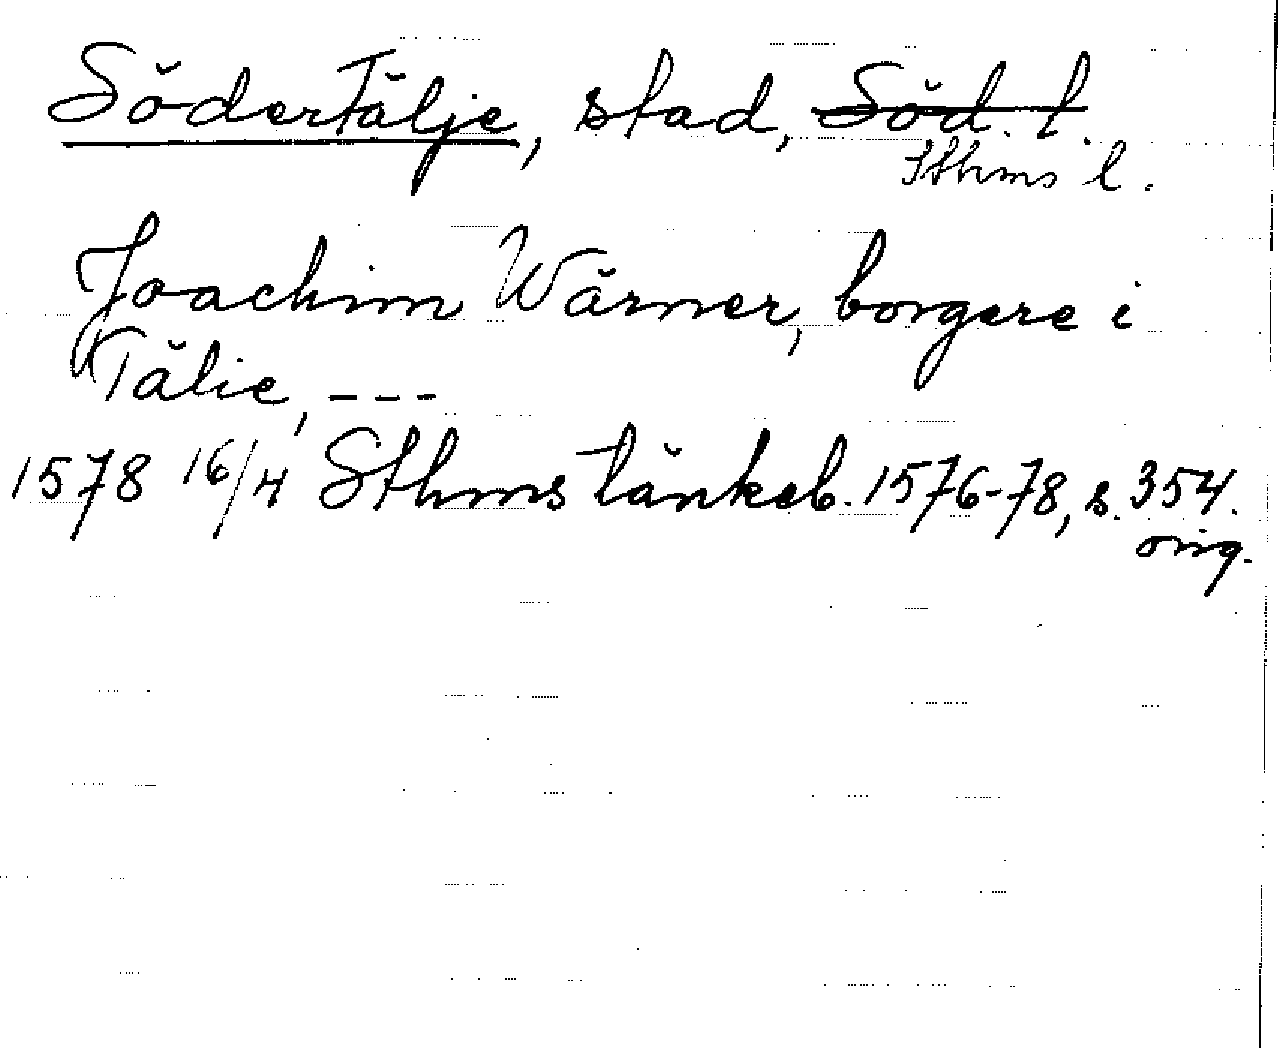 Södertälje, stad, Söd. l.
Sthms l.
Joachim Wärner, borgere i
Tälie, ---
1578 16/4 Sthms tänkeb. 1576-78, s. 354.
orig.